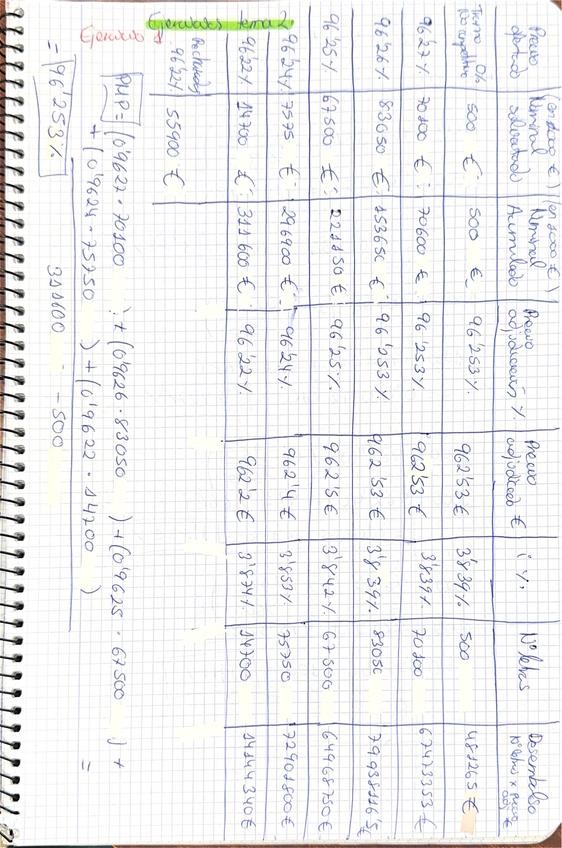 Ejercicios tema 2
Ejercicio 1
Precio ofertado
Nominal solicitado (en 1000 €)
Nominal Acumulado (en 1000 €)
Precio adjudicación %
Precio adjudicado €
i %
Nº letras
Desembolso Nº letras x precio adj. €
no competitiva 500 € 500 € 96'253% 962'53 € 3'839% 500 481265 €
96'27% 70100 € 70600 € 96'253% 962'53 € 3'839% 70100 67473353 €
96'26% 83050 € 153650 € 96'253% 962'53 € 3'839% 83050
96'25% 67500 € 221150 € 96'25% 962'5 € 3'842% 67500 64968750 €
96'24% 75750 € 296900 € 96'24% 962'4 € 75750 72901800 €
96'22% 14700 € 311600 € 96'22% 962'2 € 3'874% 14700 14144340 €
Rechazadas
96'22% 55900 €
PMP = (0'9627 · 70100 ) + (0'9626 · 83050 ) + (0'9625 · 67500 ) +
+ (0'9624 · 75750 ) + (0'9622 · 14700 ) =
311600 - 500
= 96'253%